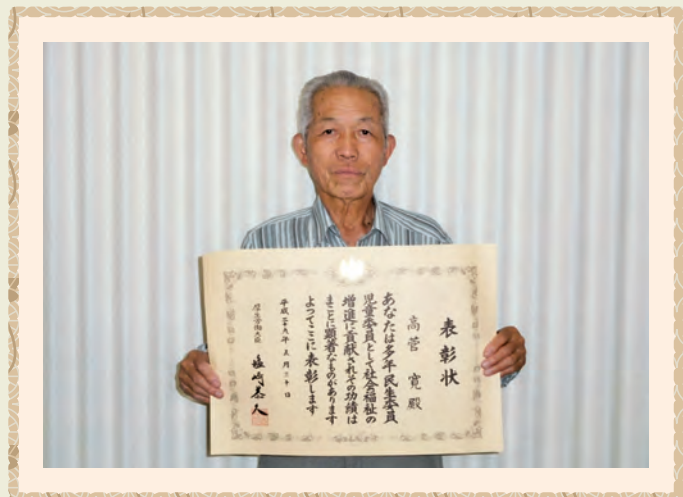 表彰状
高菅寛殿
あなたは多年民生委員
児童委員として社会福祉の
増進に貢献されその功績は
まことに顕著なものがあります
よってここに表彰します
平成二十六年
厚生労働大臣
塩崎恭久